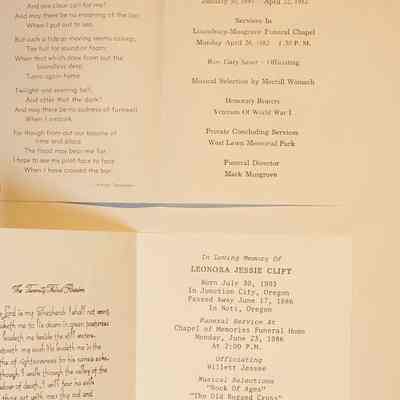 And one clear call for me!
And may there be no moaning of the bar,
When I put out to sea,
But such a tide as moving seems asleep,
Too full for sound or foam,
When that which drew from out the
boundless deep
Turns again home.
Twilight and evening bell,
And after that the dark!
And may there be no sadness of farewell
When I embark.
For though from out our bourne of
time and place
The flood may bear me far,
I hope to see my pilot face to face
When I have crossed the bar.
January 30, April 22, 1982
Services In
Lounsbury-Musgrove Funeral Chapel
Monday April 26, 1982 1:30 P. M.
Rev. Gary Sauer - Officiating
Musical Selection by Merrill Womach
Honorary Bearers
Veterans Of World War I
Private Concluding Services
West Lawn Memorial Park
Funeral Director
Mark Musgrove
The Twenty-Third Psalm
Lord is my Shepherd: I shall not want.
maketh me to lie down in green pastures
leadeth me beside the still waters.
restoreth my soul: He leadeth me in the
of righteousness for his names sake.
though I walk through the valley of the
shadow of death, I will fear no evil:
thou art with me; thy rod and
In Loving Memory Of
LEONORA JESSIE CLIFT
Born July 30, 1903
In Junction City, Oregon
Passed Away June 17, 1986
In Noti, Oregon
Funeral Service At
Chapel of Memories Funeral Home
Monday, June 23, 1986
At 2:00 P.M.
Officiating
Willett Jessee
Musical Selections
"Rock Of Ages"
"The Old Rugged Cross"